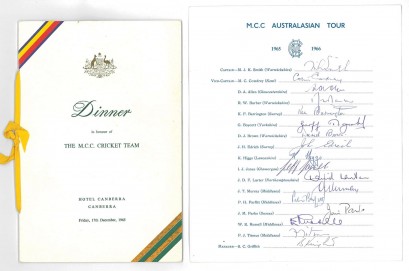 Dinner
in honour of
THE M.C.C. CRICKET TEAM
HOTEL CANBERRA
CANBERRA
Friday, 17th December, 1965
M.C.C AUSTRALASIAN TOUR
1965 1966
Captain—M. J. K. Smith (Warwickshire)
Vice-Captain—M. C. Cowdrey (Kent)
D. A. Allen (Gloucestershire)
R. W. Barber (Warwickshire)
K. F. Barrington (Surrey)
G. Boycott (Yorkshire)
D. J. Brown (Warwickshire)
J. H. Edrich (Surrey)
K. Higgs (Lancashire)
I. J. Jones (Glamorgan)
J. D. F. Larter (Northamptonshire)
J. T. Murray (Middlesex)
P. H. Parfitt (Middlesex)
J. M. Parks (Sussex)
W. E. Russell (Middlesex)
F. J. Titmus (Middlesex)
Manager—S. C. Griffith